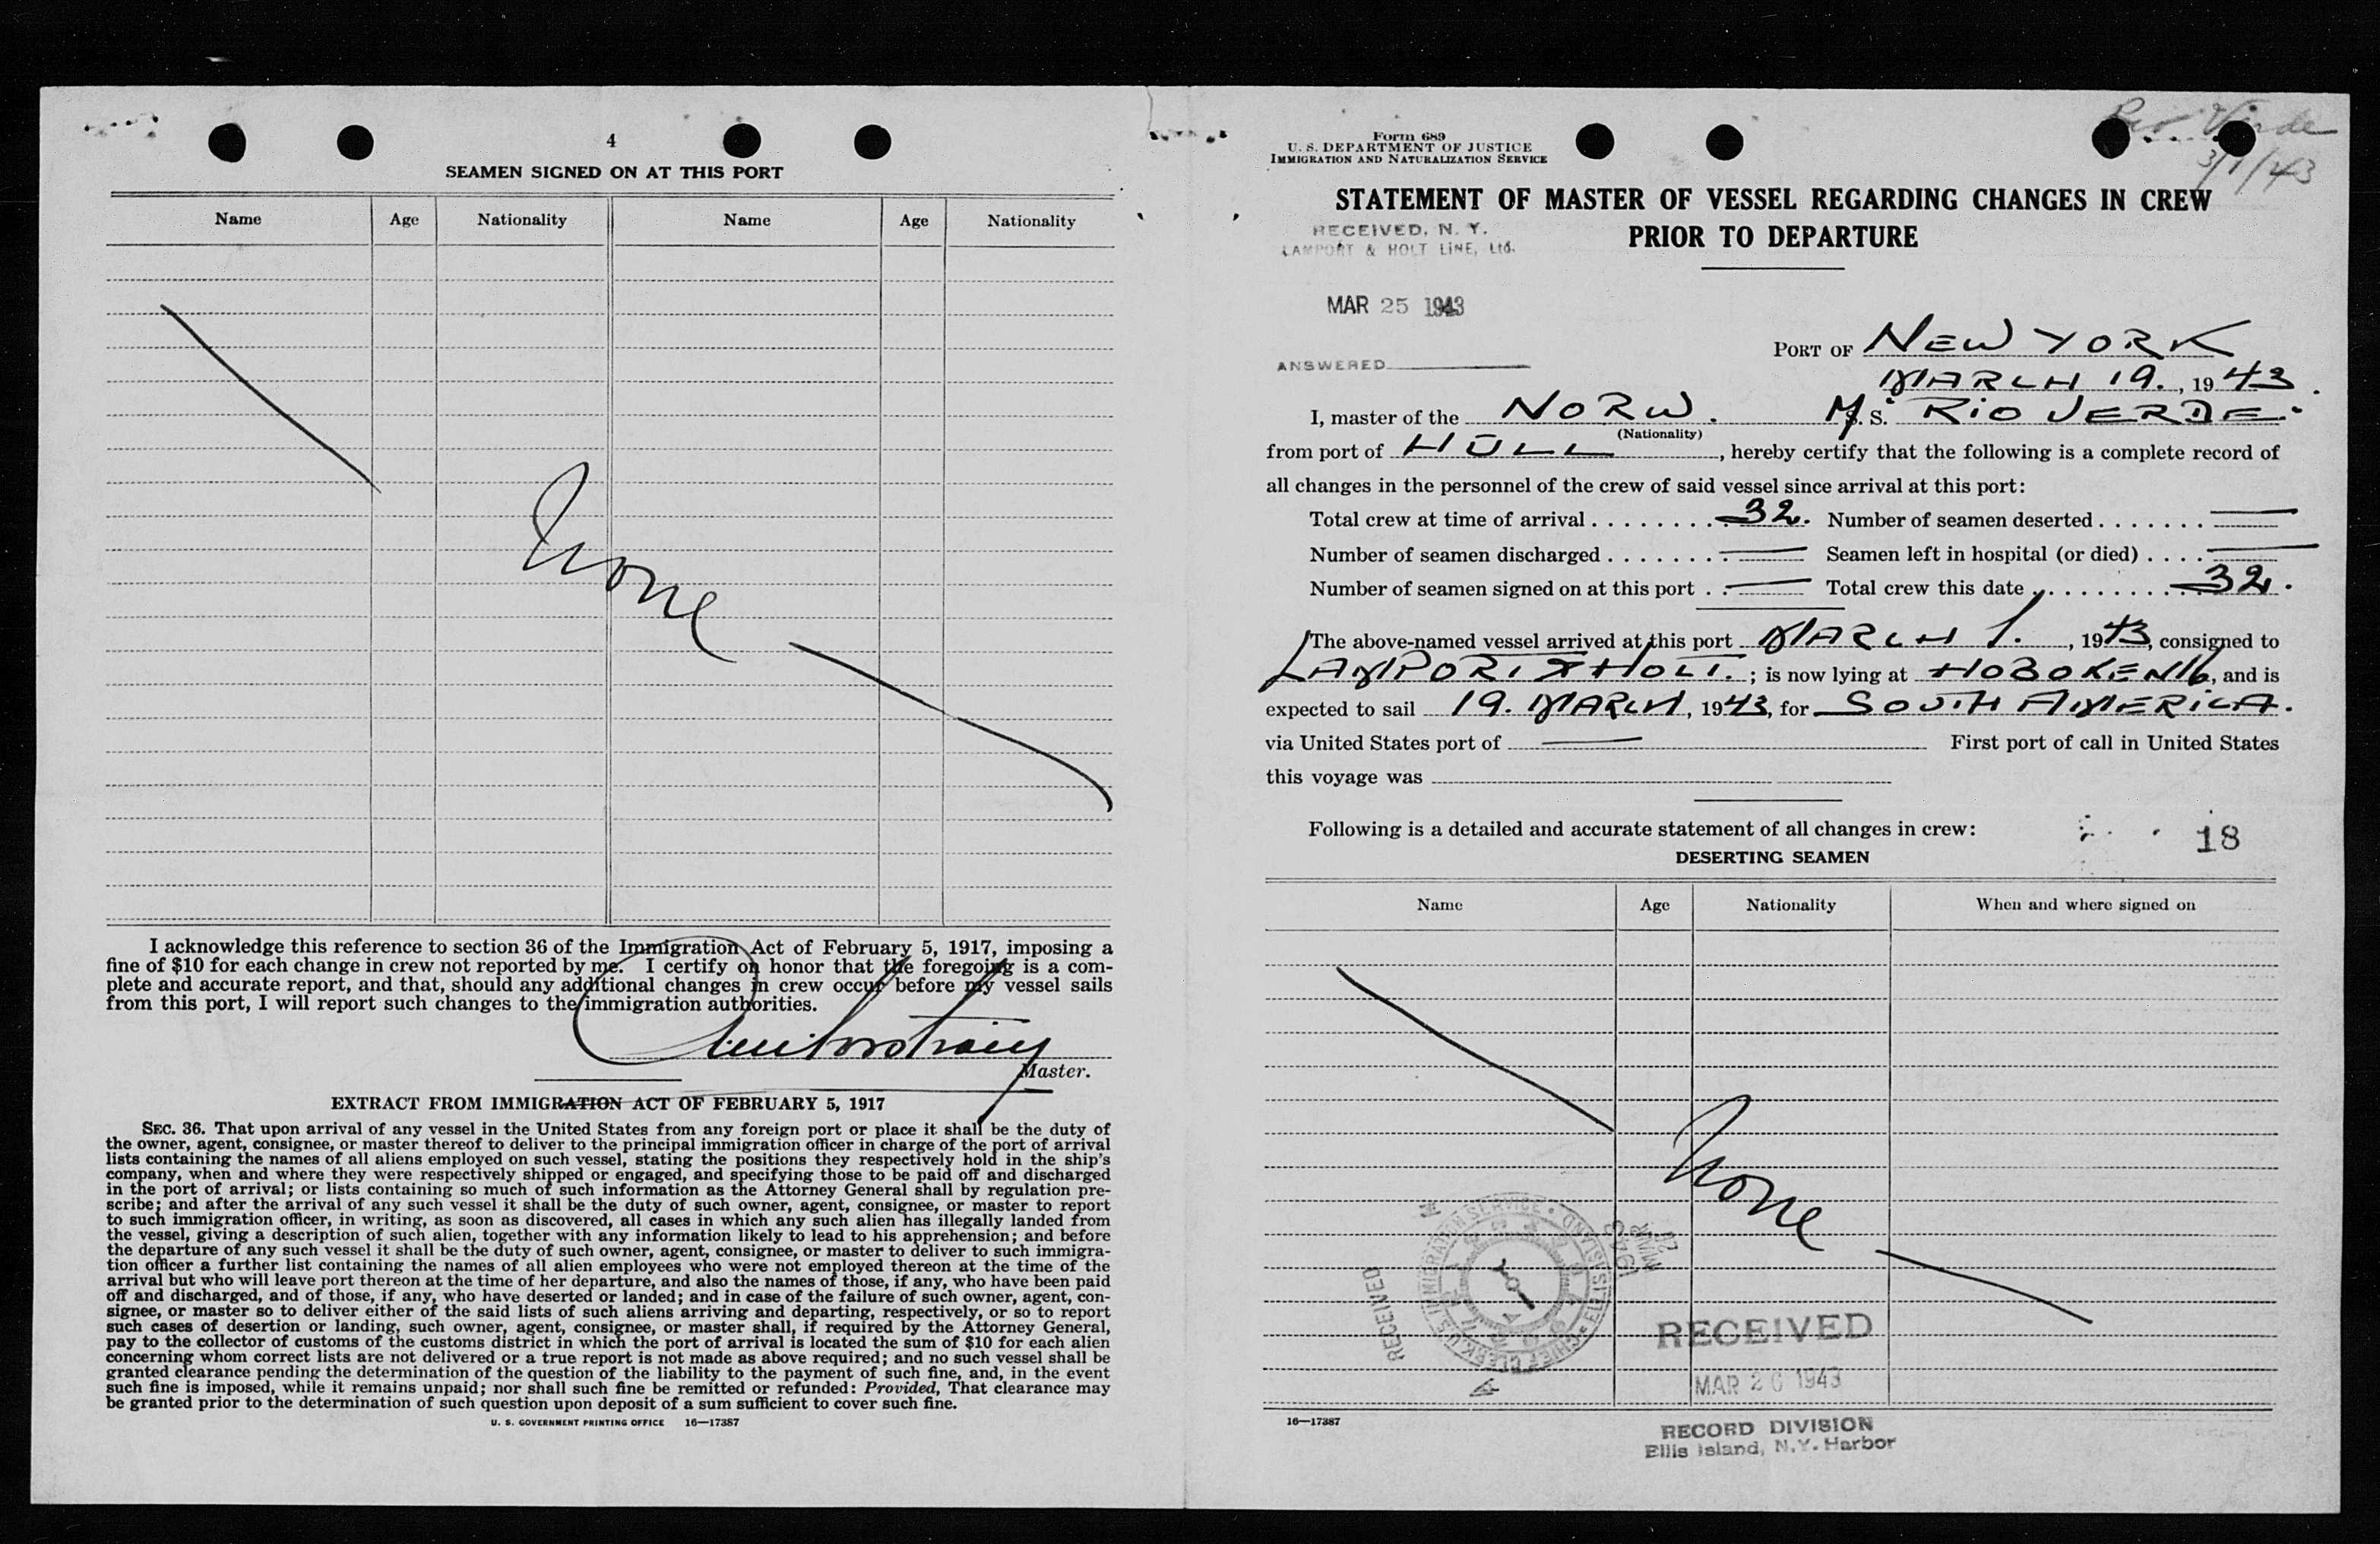 4
SEAMEN SIGNED ON AT THIS PORT
Name Age Nationality Name Age Nationality
None
I acknowledge this reference to section 36 of the Immigration Act of February 5, 1917, imposing a
fine of $10 for each change in crew not reported by me. I certify on honor that the foregoing is a com-
plete and accurate report, and that, should any additional changes in crew occur before my vessel sails
from this port, I will report such changes to the immigration authorities.
Master.
EXTRACT FROM IMMIGRATION ACT OF FEBRUARY 5, 1917
SEC. 36. That upon arrival of any vessel in the United States from any foreign port or place it shall be the duty of
the owner, agent, consignee, or master thereof to deliver to the principal immigration officer in charge of the port of arrival
lists containing the names of all aliens employed on such vessel, stating the positions they respectively hold in the ship's
company, when and where they were respectively shipped or engaged, and specifying those to be paid off and discharged
in the port of arrival; or lists containing so much of such information as the Attorney General shall by regulation pre-
scribe; and after the arrival of any such vessel it shall be the duty of such owner, agent, consignee, or master to report
to such immigration officer, in writing, as soon as discovered, all cases in which any such alien has illegally landed from
the vessel, giving a description of such alien, together with any information likely to lead to his apprehension; and before
the departure of any such vessel it shall be the duty of such owner, agent, consignee, or master to deliver to such immigra-
tion officer a further list containing the names of all alien employees who were not employed thereon at the time of the
arrival but who will leave port thereon at the time of her departure, and also the names of those, if any, who have been paid
off and discharged, and of those, if any, who have deserted or landed; and in case of the failure of such owner, agent, con-
signee, or master so to deliver either of the said lists of such aliens arriving and departing, respectively, or so to report
such cases of desertion or landing, such owner, agent, consignee, or master shall, if required by the Attorney General,
pay to the collector of customs of the customs district in which the port of arrival is located the sum of $10 for each alien
concerning whom correct lists are not delivered or a true report is not made as above required; and no such vessel shall be
granted clearance pending the determination of the question of the liability to the payment of such fine, and, in the event
such fine is imposed, while it remains unpaid; nor shall such fine be remitted or refunded: Provided, That clearance may
be granted prior to the determination of such question upon deposit of a sum sufficient to cover such fine.
U. S. GOVERNMENT PRINTING OFFICE 16—17387
Rio Virde
3/1/43
Form 689
U. S. DEPARTMENT OF JUSTICE
IMMIGRATION AND NATURALIZATION SERVICE
STATEMENT OF MASTER OF VESSEL REGARDING CHANGES IN CREW
PRIOR TO DEPARTURE
RECEIVED, N. Y.
LAMPORT & HOLT LINE, Ltd.
MAR 25 1943
ANSWERED
PORT OF NEW YORK
MARCH 19., 1943.
I, master of the NORW. M. S. RIO VERDE.
(Nationality)
from port of HULL, hereby certify that the following is a complete record of
all changes in the personnel of the crew of said vessel since arrival at this port:
Total crew at time of arrival 32. Number of seamen deserted —
Number of seamen discharged — Seamen left in hospital (or died) —
Number of seamen signed on at this port — Total crew this date 32.
The above-named vessel arrived at this port MARCH 1., 1943, consigned to
LAMPORT & HOLT.; is now lying at HOBOKEN, and is
expected to sail 19. MARCH, 1943, for SOUTH AMERICA.
via United States port of — First port of call in United States
this voyage was
Following is a detailed and accurate statement of all changes in crew:
18
DESERTING SEAMEN
Name Age Nationality When and where signed on
None
RECEIVED
CHIEF CLERK U.S. IMMIGRATION SERVICE • ELLIS ISLAND
MAR 1943
RECEIVED
MAR 26 1943
RECORD DIVISION
Ellis Island, N.Y. Harbor
16—17387